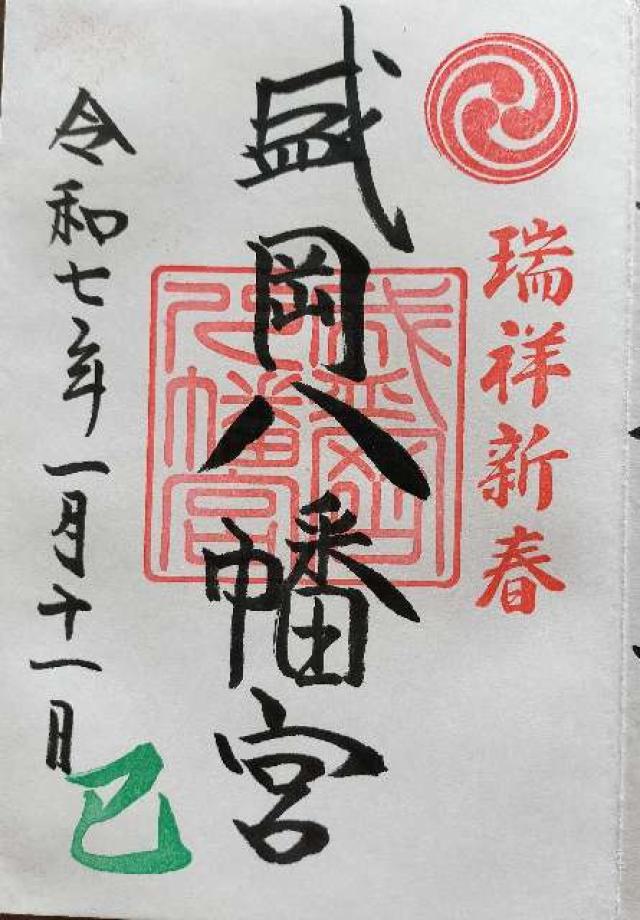 瑞祥新春
盛岡八幡宮
盛岡八幡宮
令和七年一月十一日
巳